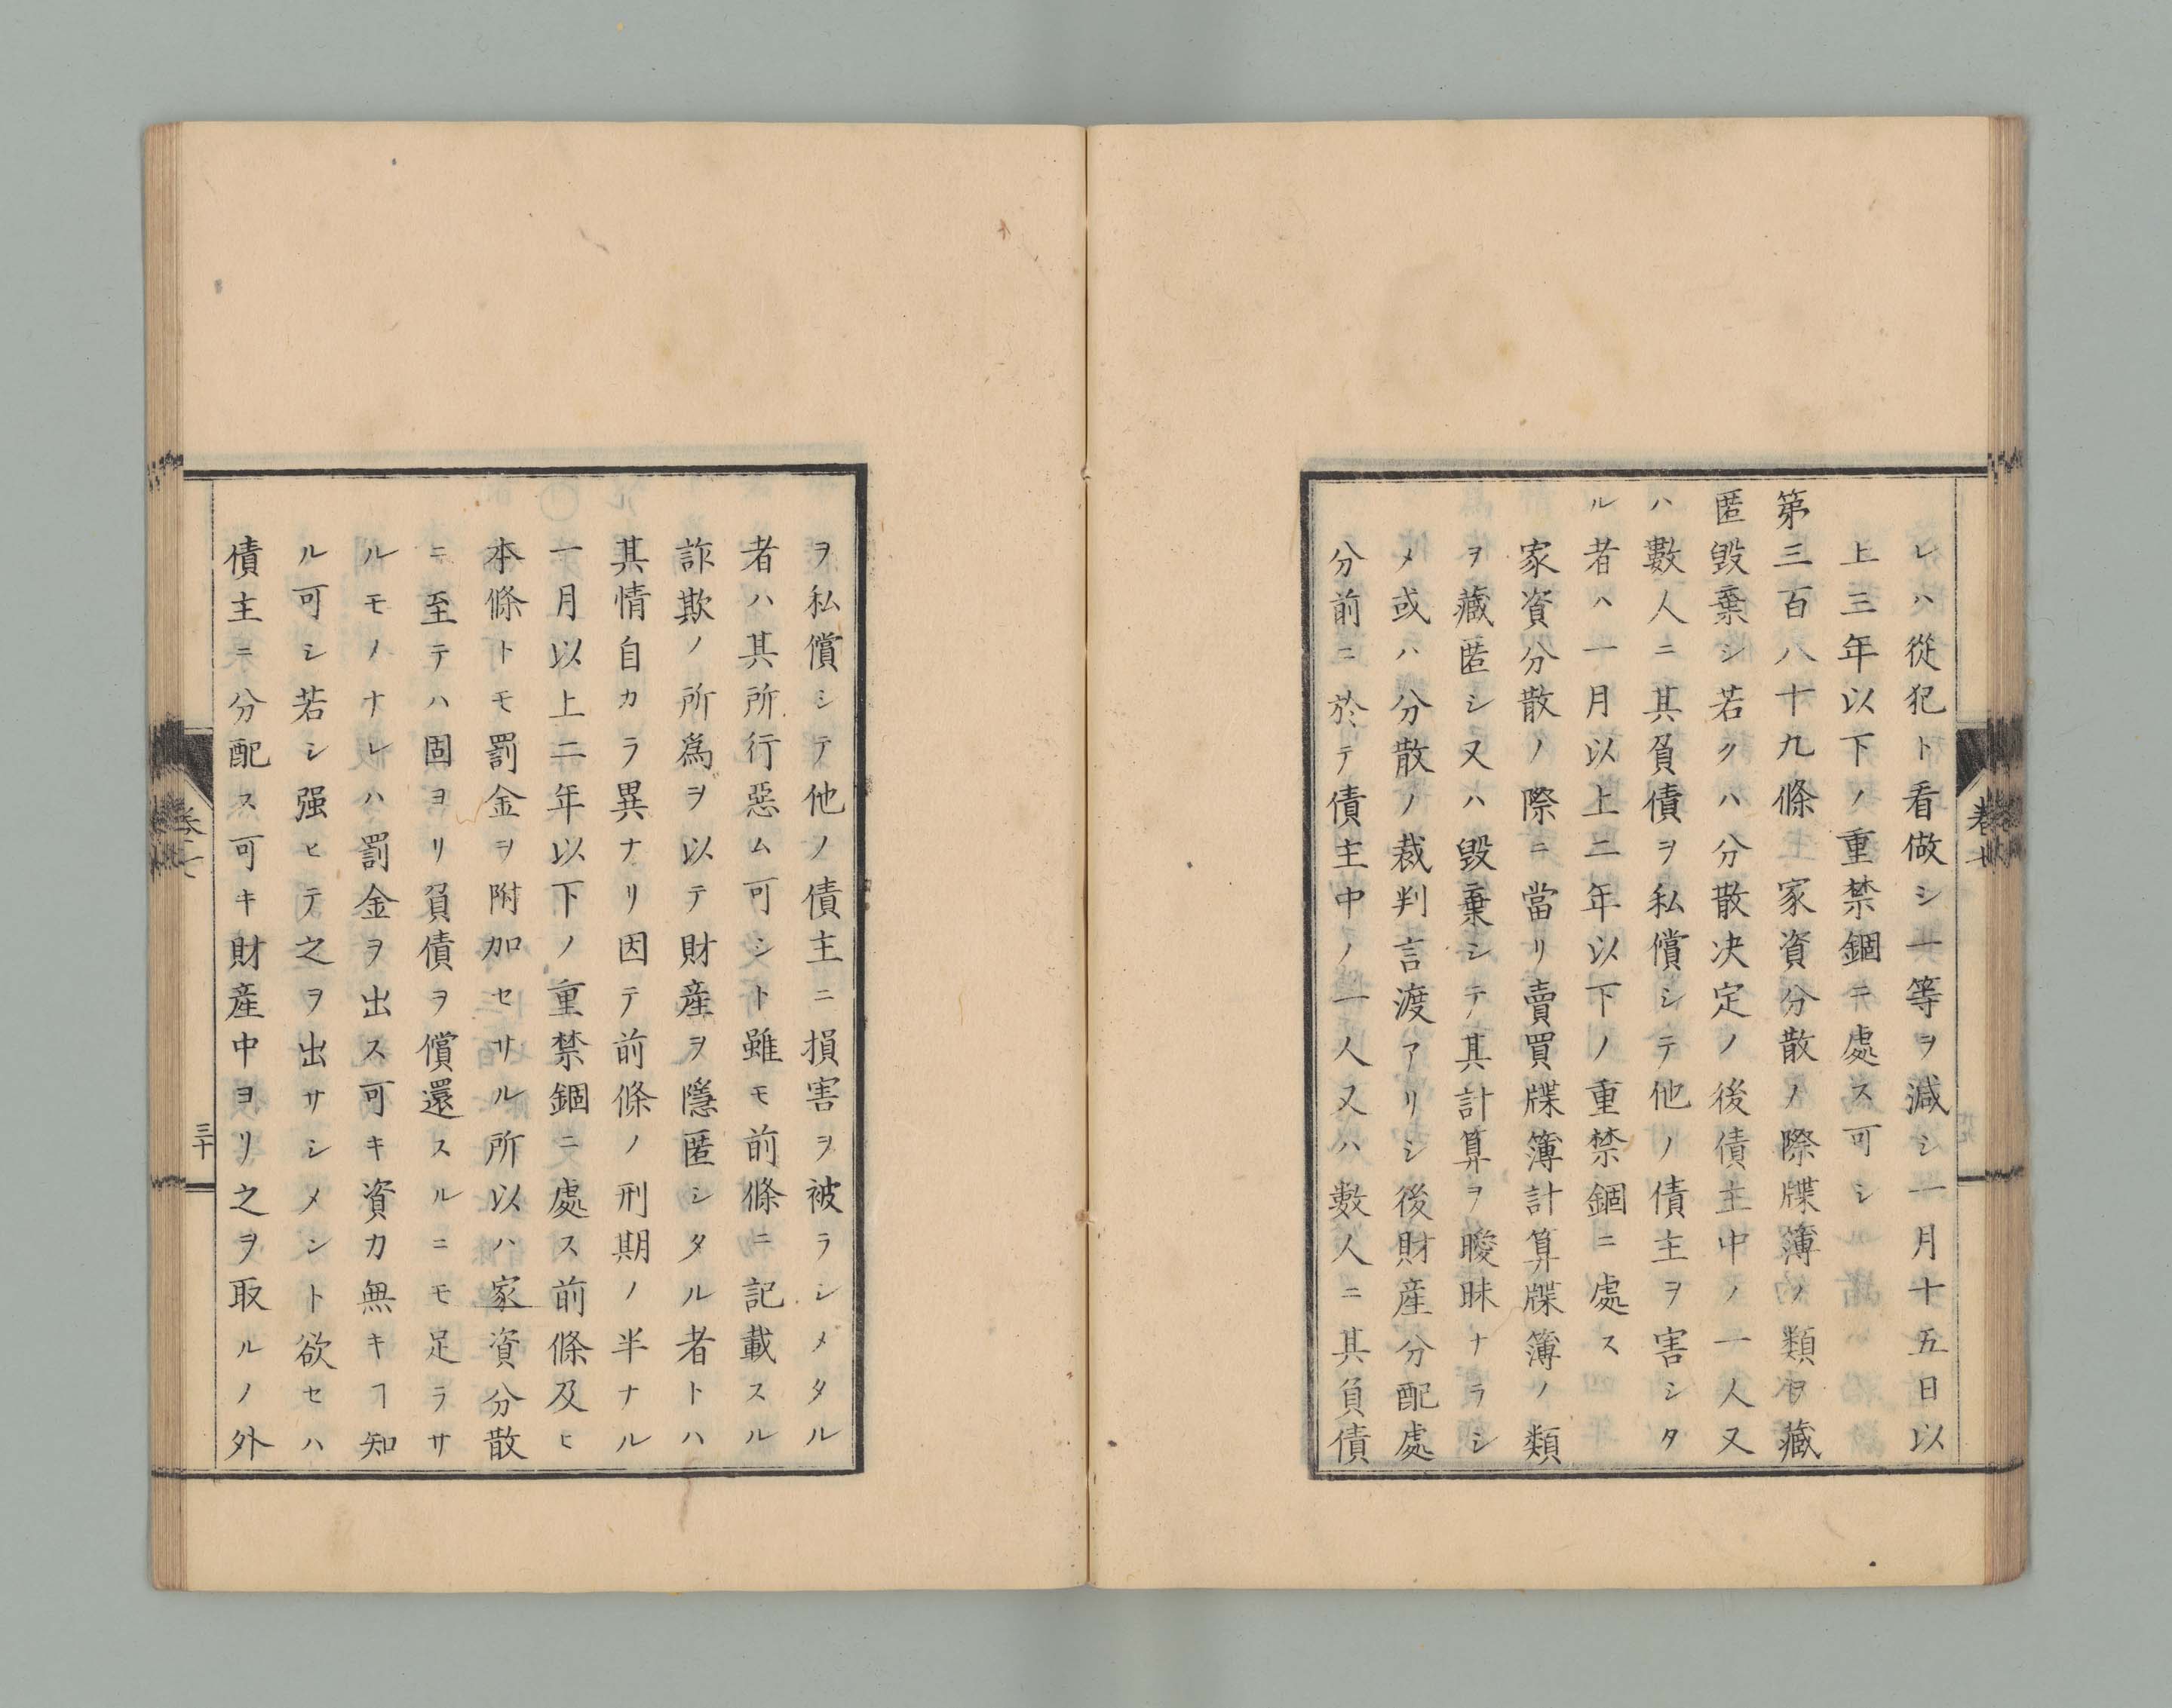 レハ從犯ト看做シ一等ヲ減シ一月十五日以
上三年以下ノ重禁錮ニ處ス可シ
第三百八十九條家資分散ノ際牒簿ノ類ヲ藏
匿毀棄シ若クハ分散决定ノ後債主中ノ一人又
ハ數人ニ其負債ヲ私償シテ他ノ債主ヲ害シタ
ル者ハ一月以上二年以下ノ重禁錮ニ處ス
家資分散ノ際ニ當リ賣買牒簿計算牒簿ノ類
ヲ藏匿シ又ハ毀棄シテ其計算ヲ曖昧ナラシ
メ或ハ分散ノ裁判言渡アリシ後財産分配處
分前ニ於テ債主中ノ一人又ハ數人ニ其負債
ヲ私償シテ他ノ債主ニ損害ヲ被ラシメタル
者ハ其所行惡ム可シト雖モ前條ニ記載スル
詐欺ノ所爲ヲ以テ財産ヲ隱匿シタル者トハ
其情自カラ異ナリ因テ前條ノ刑期ノ半ナル
一月以上二年以下ノ重禁錮ニ處ス前條及ヒ
本條トモ罰金ヲ附加セサル所以ハ家資分散
ニ至テハ固ヨリ負債ヲ償還スルニモ足ラサ
ルモノナレハ罰金ヲ出ス可キ資力無キヿ知
ル可シ若シ强ヒテ之ヲ出サシメント欲セハ
債主ニ分配ス可キ財産中ヨリ之ヲ取ルノ外
三十